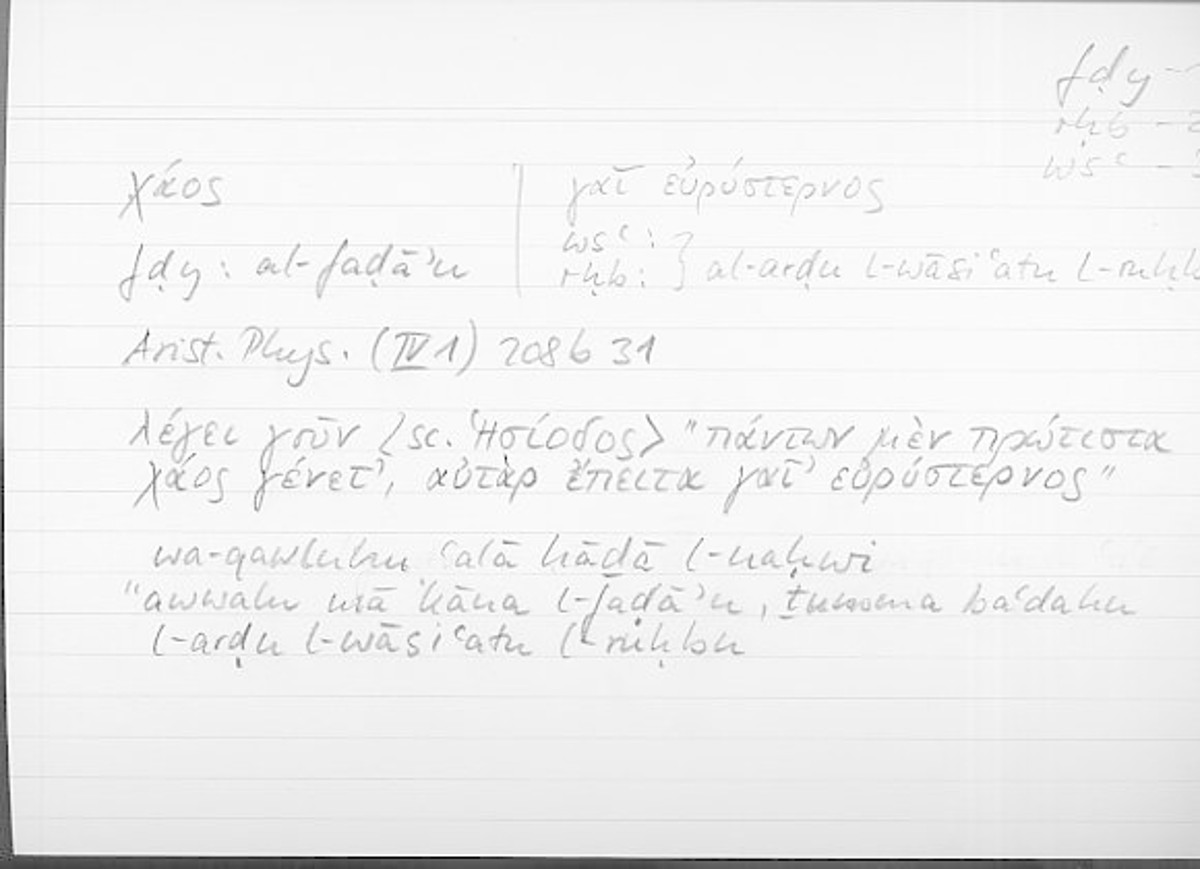 fḍy -
rḥb -
wsʿ -
χάος | γαῖ εὐρύστερνος
fḍy: al-faḍāʾu | wsʿ: rḥb: } al-arḍu l-wāsiʿatu l-ruḥb
Arist. Phys. (IV 1) 208 b 31
λέγει γοῦν <sc. Ἡσίοδος> "πάντων μὲν πρώτιστα
χάος γένετ', αὐτὰρ ἔπειτα γαῖ' εὐρύστερνος"
wa-qawluhu ʿalā hāḏā l-naḥwi
"awwalu mā kāna l-faḍāʾu, ṯumma baʿdahu
l-arḍu l-wāsiʿatu l-ruḥbu